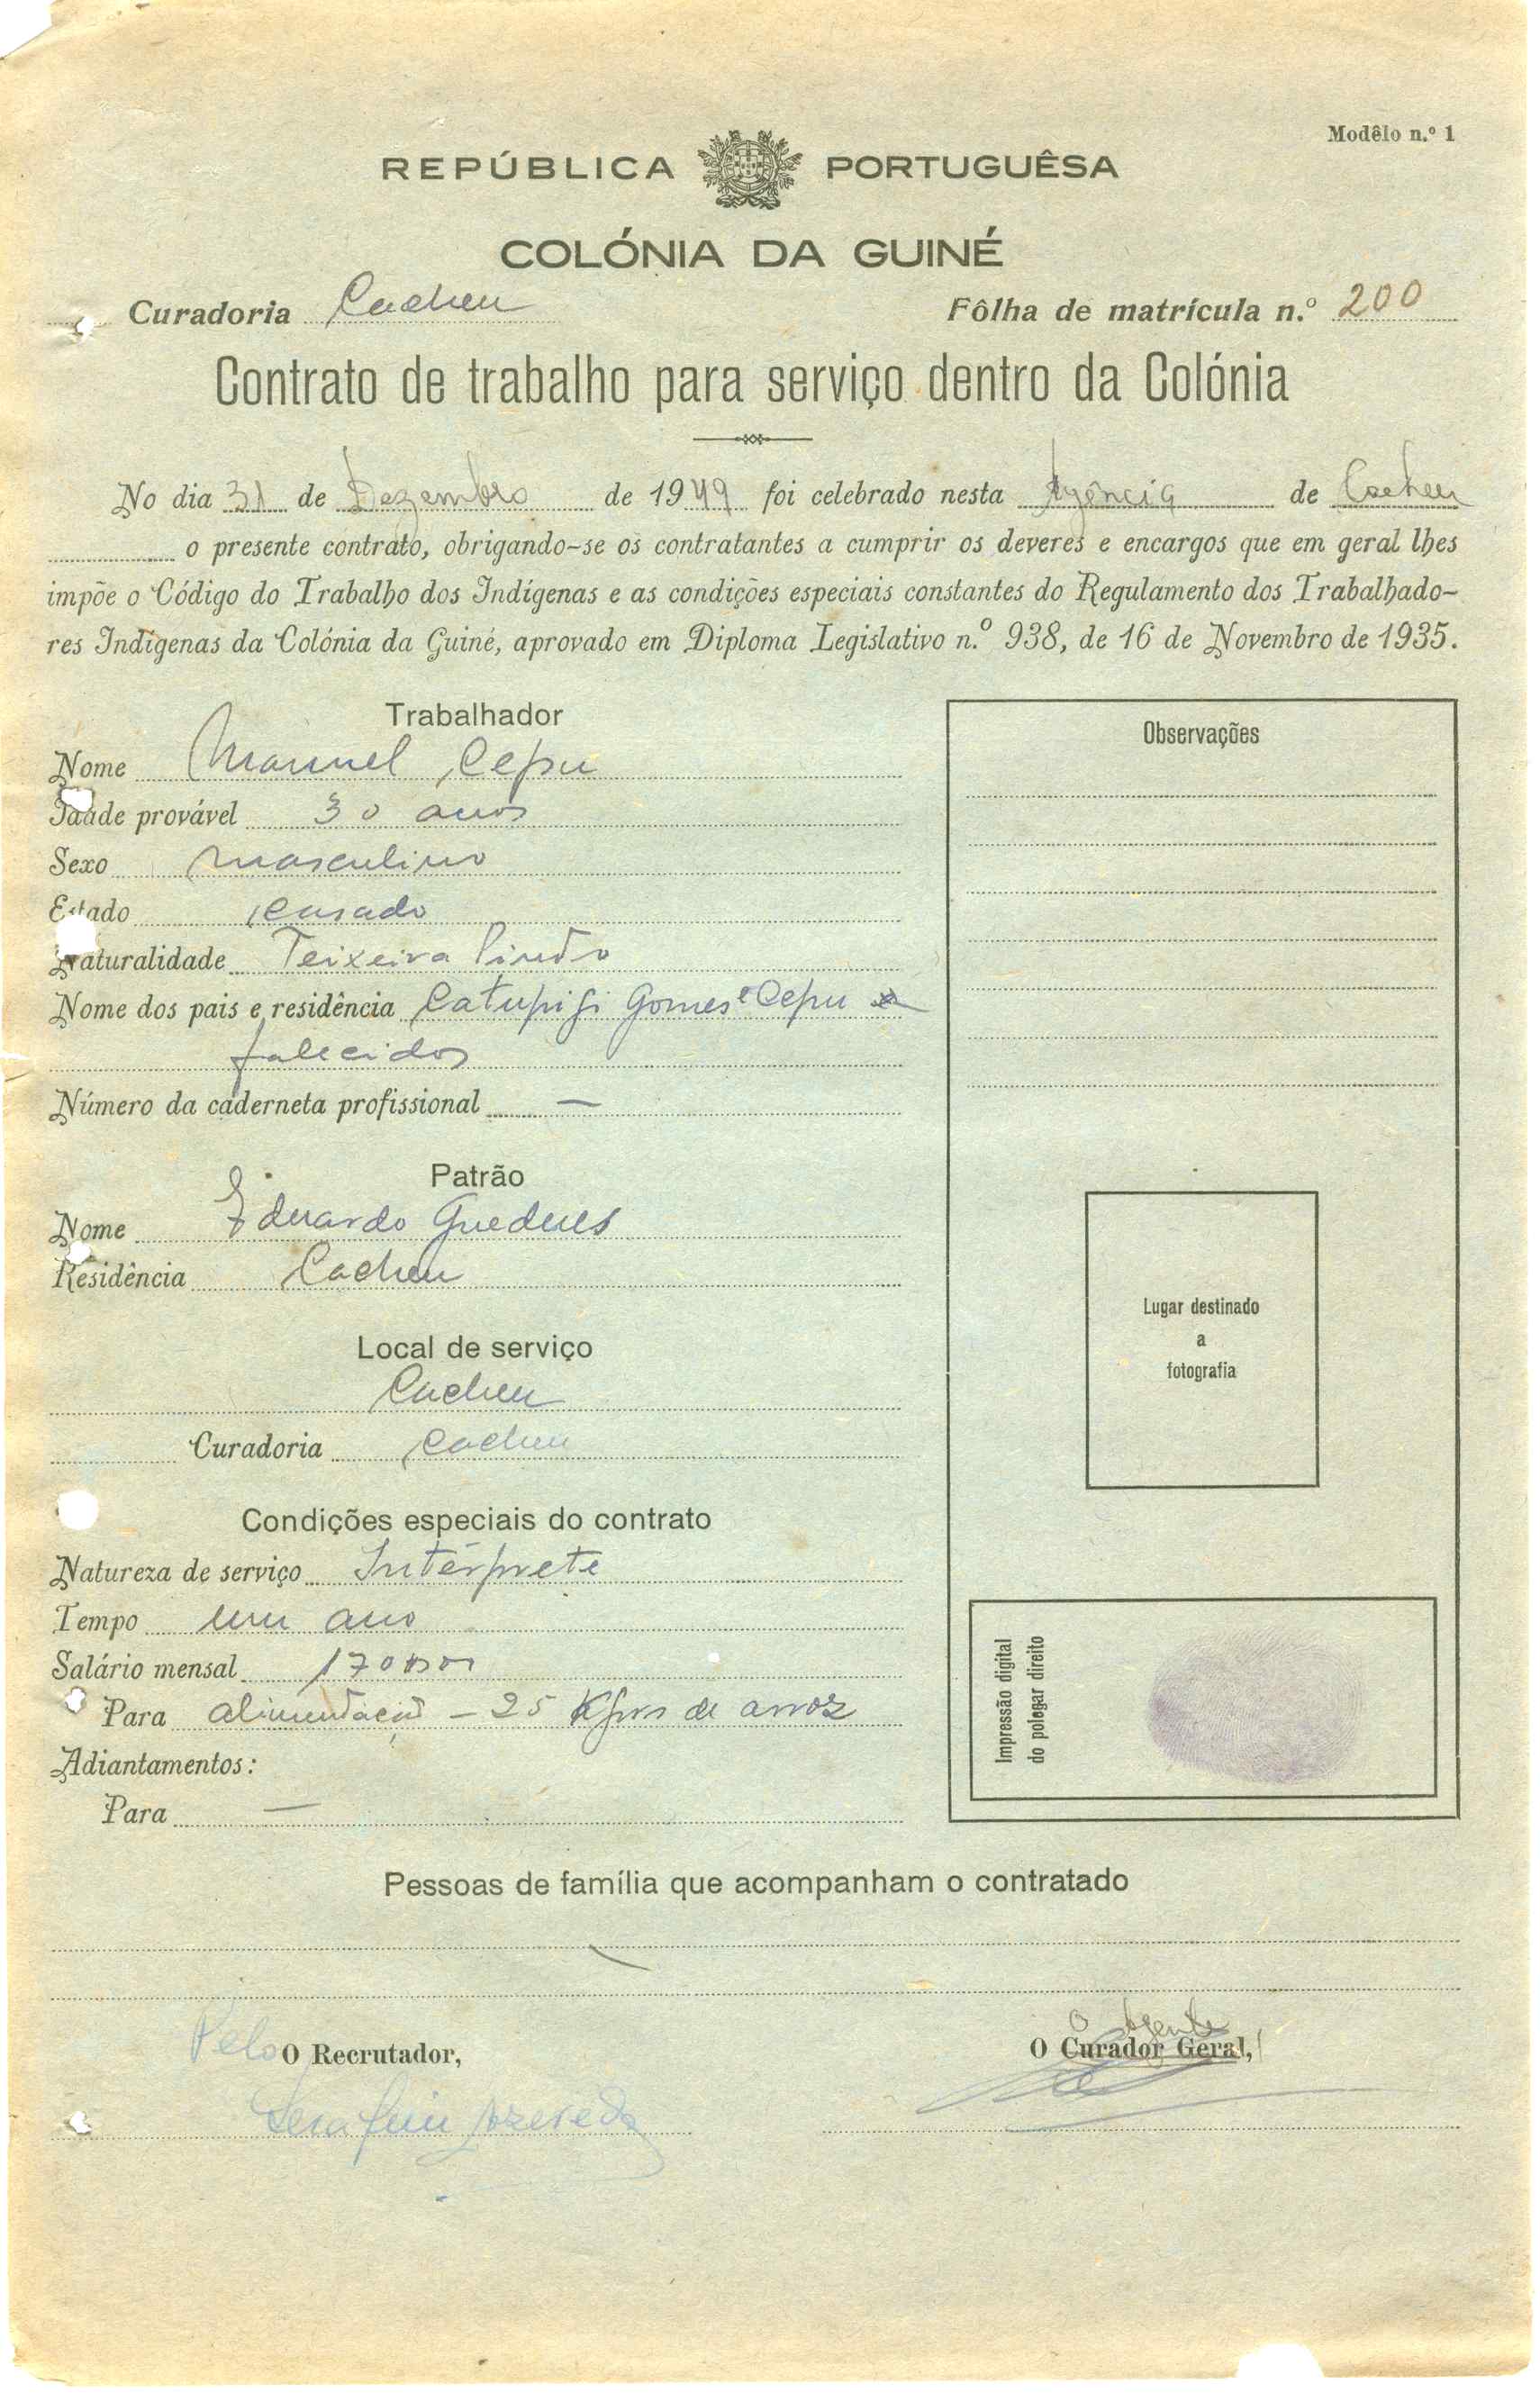 Modêlo n.º 1
REPÚBLICA PORTUGUÊSA
COLÓNIA DA GUINÉ
Curadoria Cacheu Fôlha de matrícula n.º 200
Contrato de trabalho para serviço dentro da Colónia
No dia 31 de Dezembro de 1949 foi celebrado nesta Agência de Cacheu
o presente contrato, obrigando-se os contratantes a cumprir os deveres e encargos que em geral lhes
impõe o Código do Trabalho dos Indígenas e as condições especiais constantes do Regulamento dos Trabalhado-
res Indígenas da Colónia da Guiné, aprovado em Diploma Legislativo n.º 938, de 16 de Novembro de 1935.
Trabalhador
Nome Manuel Cepu
Idade provável 30 anos
Sexo masculino
Estado casado
Naturalidade Teixeira Pinto
Nome dos pais e residência Catupigi Gomes e Cepu
falecidos
Número da caderneta profissional —
Patrão
Nome Eduardo Guedes
Residência Cacheu
Local de serviço
Cacheu
Curadoria Cacheu
Condições especiais do contrato
Natureza de serviço Intérprete
Tempo um ano
Salário mensal 170
Para alimentação - 25 Kgrs de arroz
Adiantamentos:
Para —
Observações
Lugar destinado
a
fotografia
Impressão digital
do polegar direito
Pessoas de família que acompanham o contratado
Pelo O Recrutador,
Serafim Azevedo
O Agente
O Curador Geral,